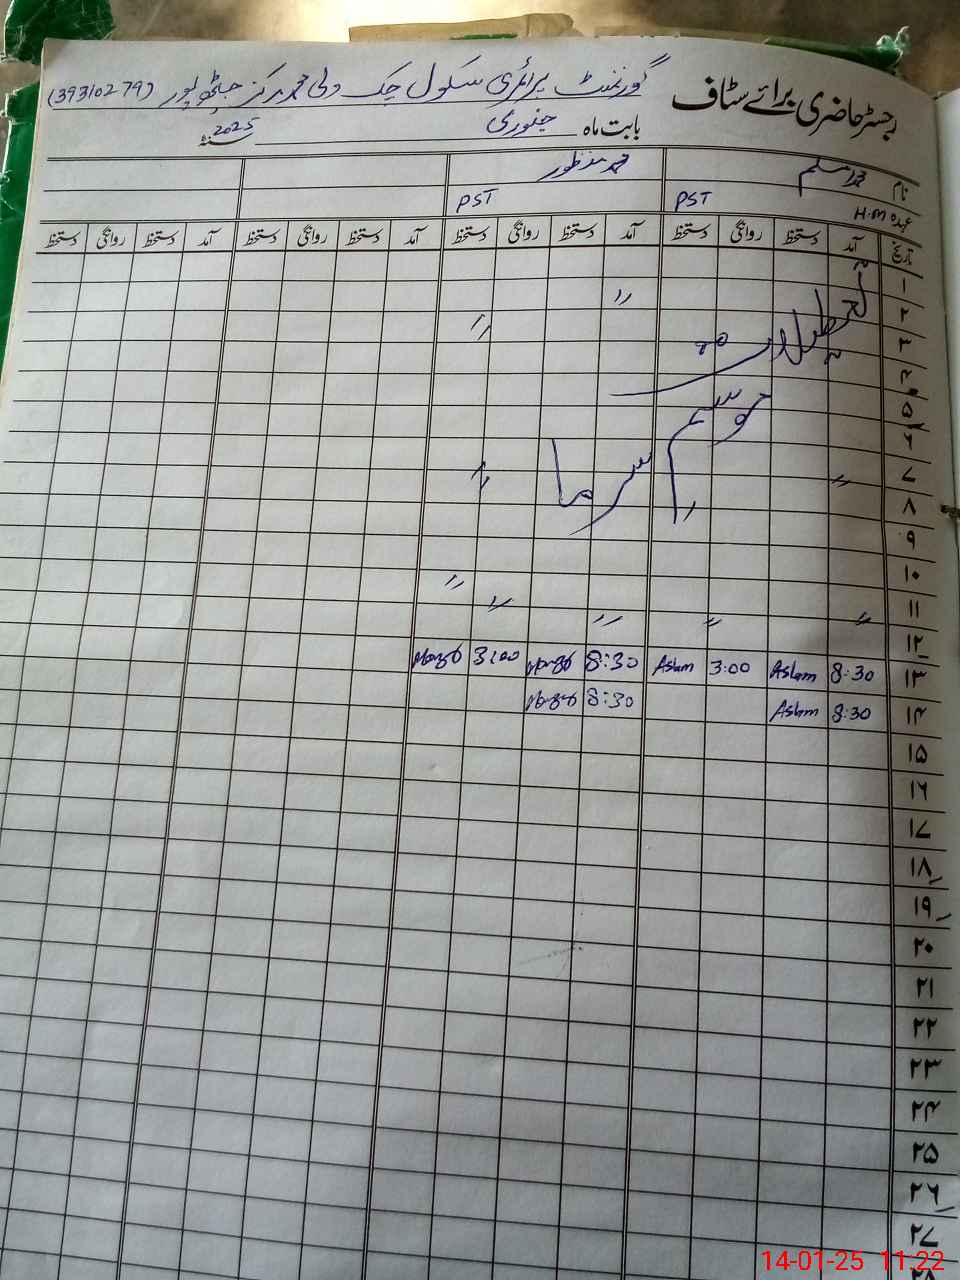 رجسٹر حاضری برائے سٹاف گورنمنٹ پرائمری سکول چک ولی محمد مرکز جلھو پور (39310279)
بابت ماہ جنوری سنہ 2025
نام محمد اسلم محمد منظور
عہدہ H.M PST PST
تاریخ آمد دستخط روانگی دستخط آمد دستخط روانگی دستخط آمد دستخط روانگی دستخط آمد دستخط روانگی دستخط
۱
۲ "
۳ "
تعطیلات
۴
۵
۶
موسم سرما
۷ " "
۸ "
۹
۱۰
۱۱ " "
۱۲ " " "
۱۳ 8:30 Aslam 3:00 Aslam 8:30 3:00
۱۴ 8:30 Aslam 8:30
۱۵
۱۶
۱۷
۱۸
۱۹
۲۰
۲۱
۲۲
۲۳
۲۴
۲۵
۲۶
۲۷
۲۸
14-01-25 11:22